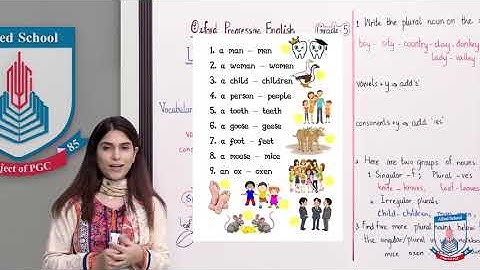 Allied School
85
Project of PGC
Oxford Progressive English
Grade 5
Vocabulary
1. a man – men
2. a woman – women
3. a child – children
4. a person – people
5. a tooth – teeth
6. a goose – geese
7. a foot – feet
8. a mouse – mice
9. an ox – oxen
1 Write the plural noun on the
boy - city - country - day - donkey
lady - valley
vowels + y → add 's'
consonents + y → add 'ies'
2. Here are two groups of nouns.
1. Singular -f; Plural - ves
knife - knives, loaf - loaves
Irregular plurals
child - children,
3. Find five more plural nouns below
the singular/plural
mice oxen
Allied School